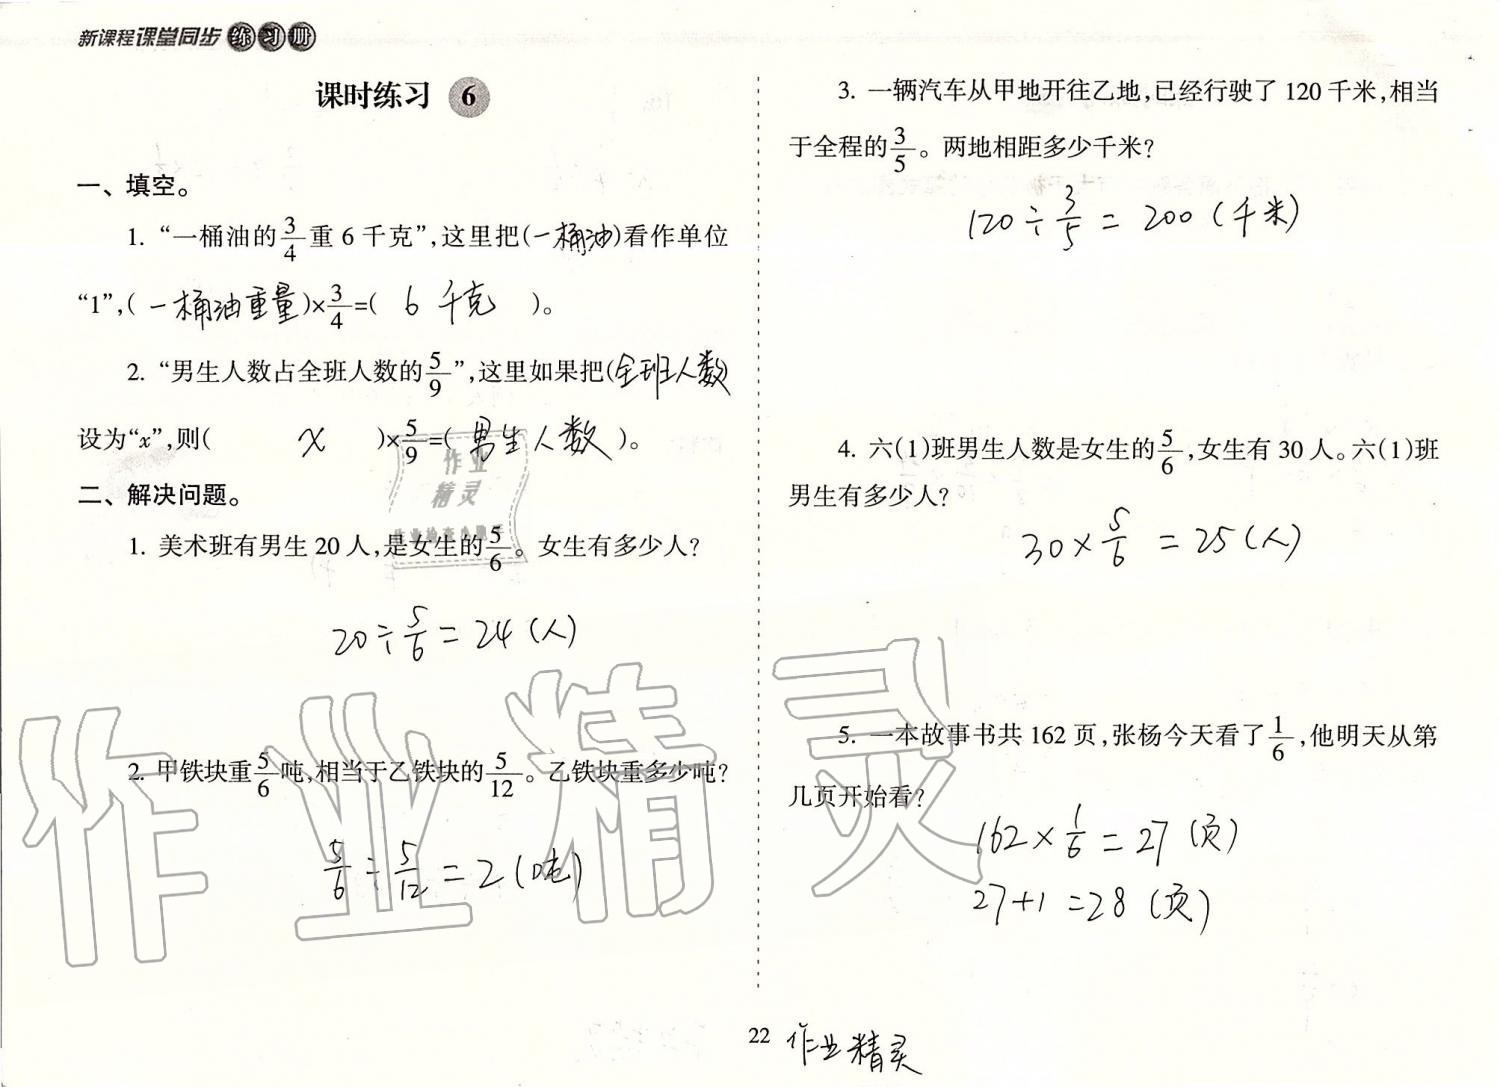 新课程课堂同步练习册
课时练习 6
一、填空。
1. “一桶油的3/4重6千克”,这里把(一桶油)看作单位
“1”,(一桶油重量)×3/4=( 6千克 )。
2. “男生人数占全班人数的5/9”,这里如果把(全班人数)
设为“x”,则( x )×5/9=(男生人数)。
二、解决问题。
1. 美术班有男生20人,是女生的5/6。女生有多少人?
20÷5/6=24(人)
2. 甲铁块重5/6吨,相当于乙铁块的5/12。乙铁块重多少吨?
5/6÷5/12=2(吨)
3. 一辆汽车从甲地开往乙地,已经行驶了120千米,相当
于全程的3/5。两地相距多少千米?
120÷3/5=200(千米)
4. 六(1)班男生人数是女生的5/6,女生有30人。六(1)班
男生有多少人?
30×5/6=25(人)
5. 一本故事书共162页,张杨今天看了1/6,他明天从第
几页开始看?
162×1/6=27(页)
27+1=28(页)
作业
精灵
作业精灵
22
作业精灵